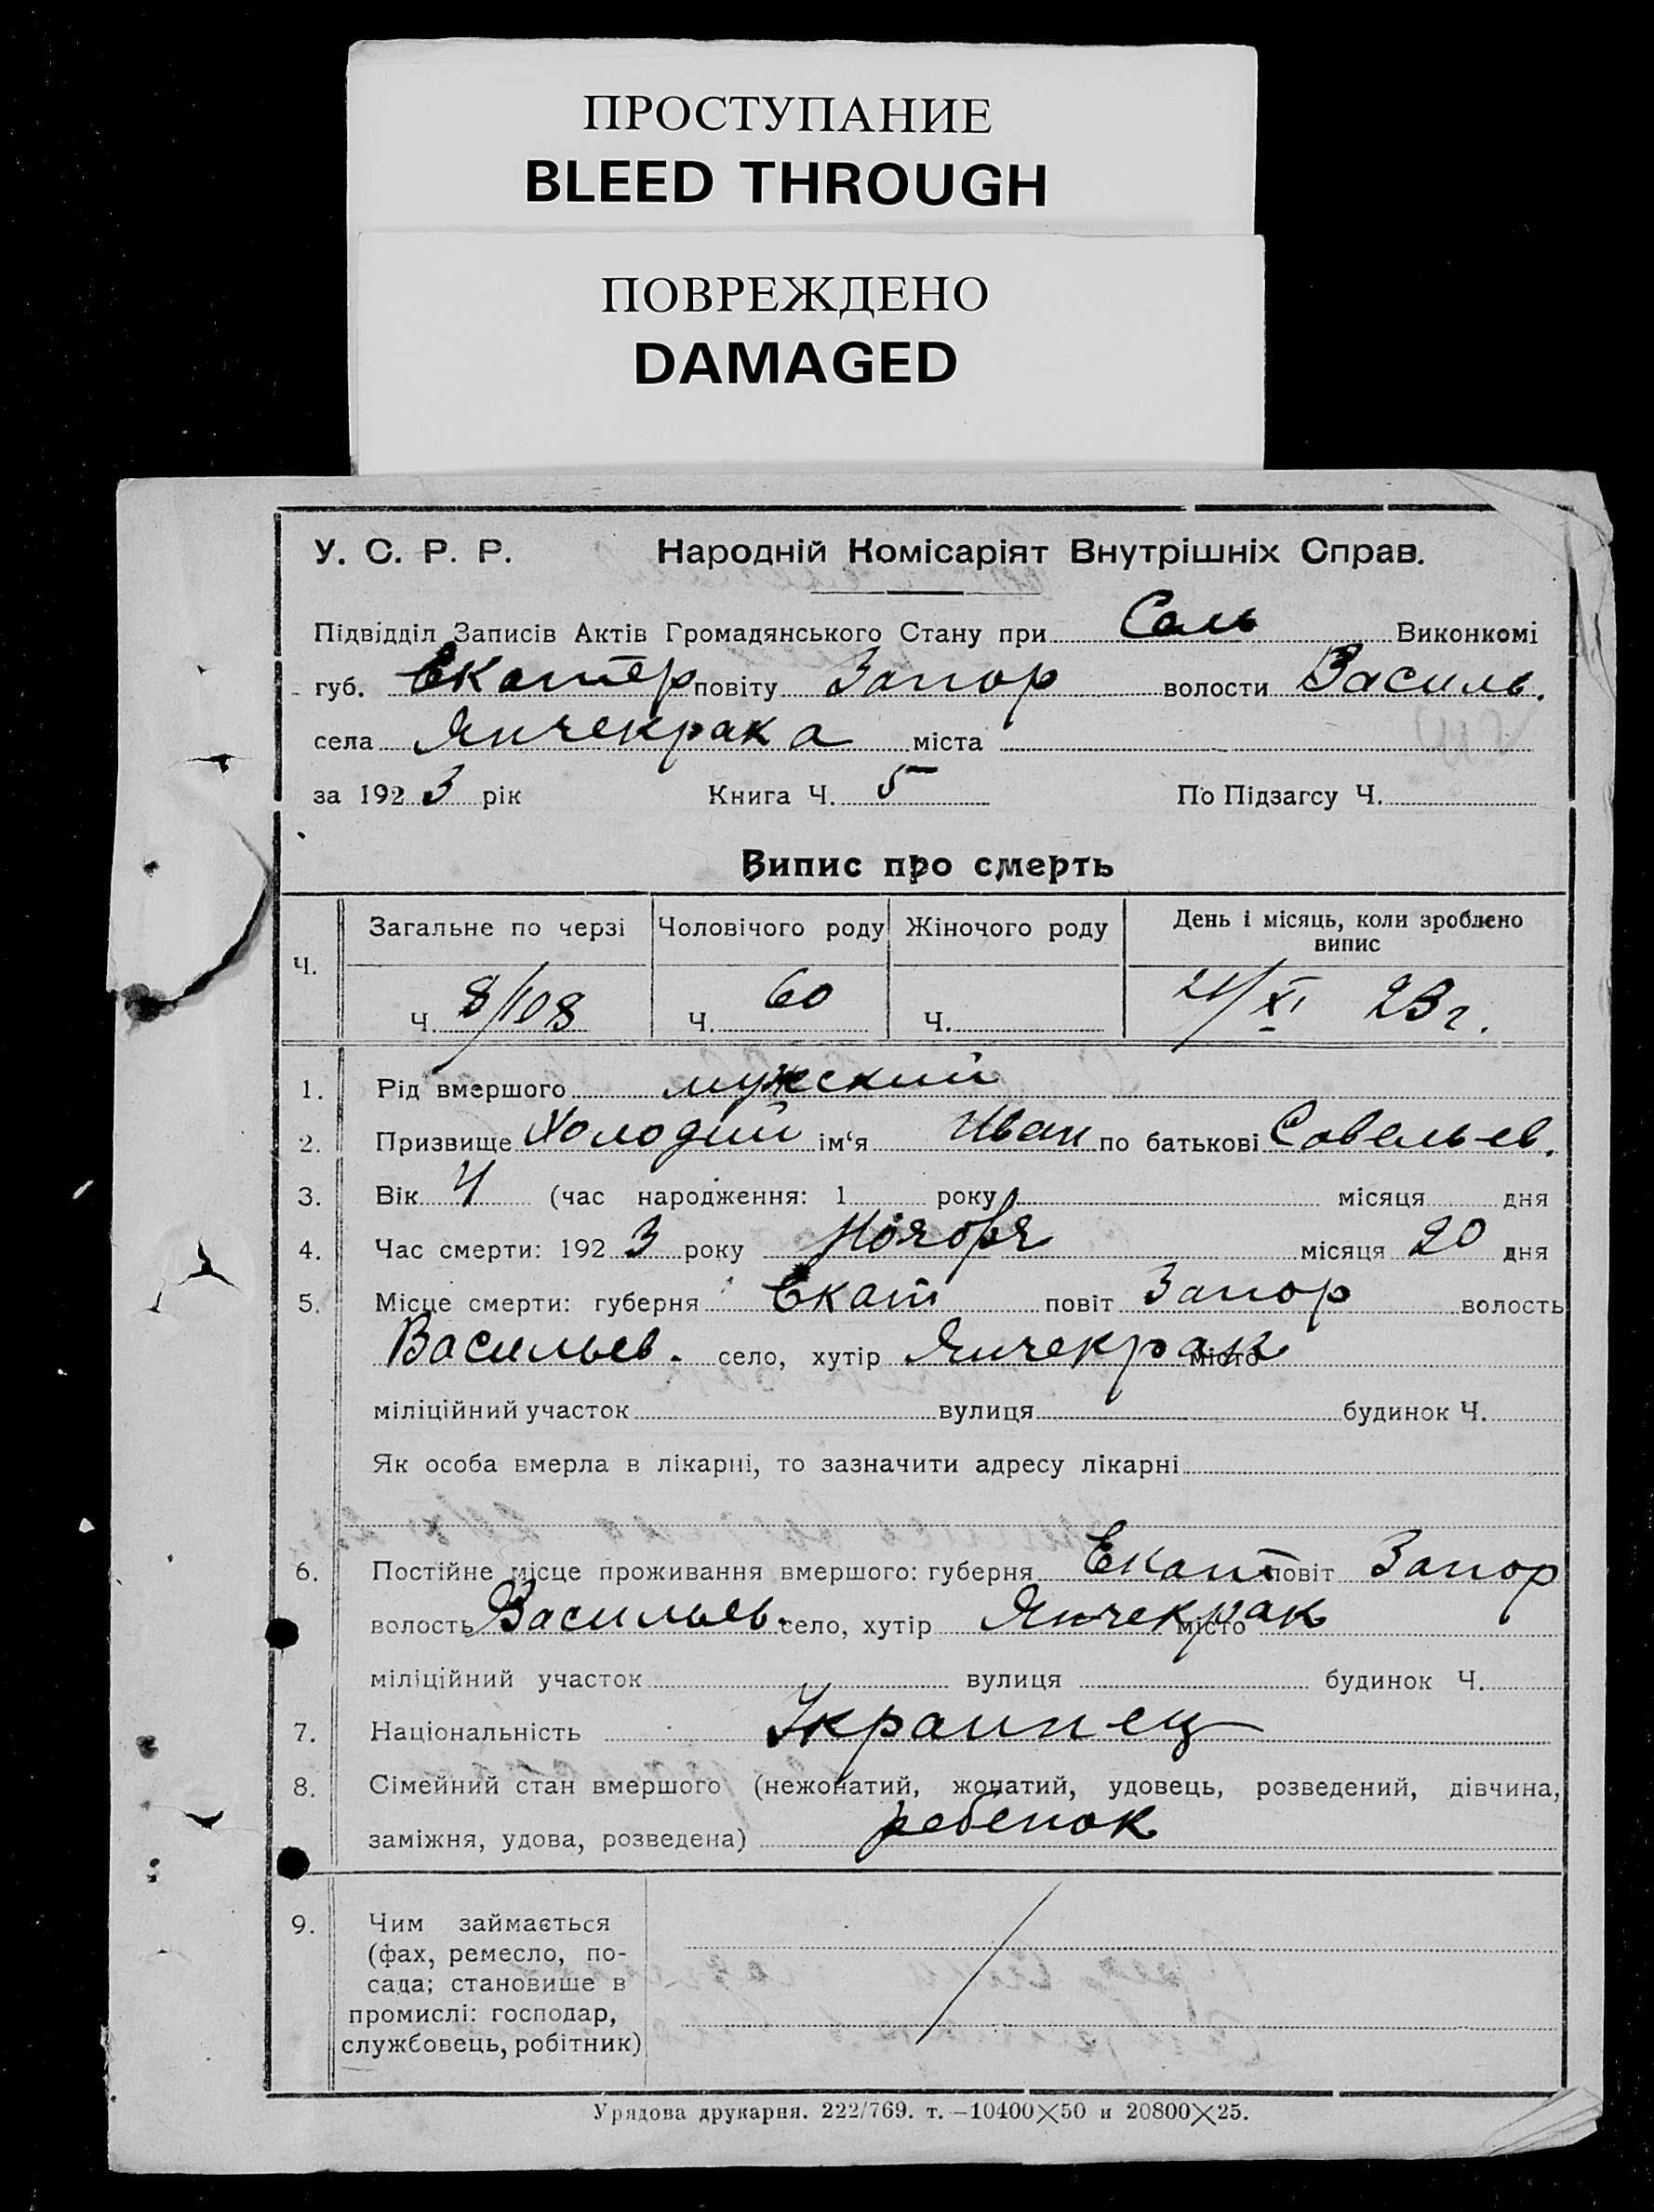 ПРОСТУПАНИЕ
BLEED THROUGH
ПОВРЕЖДЕНО
DAMAGED
У. С. Р. Р. Народній Комісаріят Внутрішніх Справ.
Підвідділ Записів Актів Громадянського Стану при Сель Виконкомі
губ. Екатер повіту Запор волости Василь.
села Янчекрака міста
за 1923 рік Книга Ч. 5 По Підзагсу Ч.
Випис про смерть
Ч. Загальне по черзі Чоловічого роду Жіночого роду День і місяць, коли зроблено
випис
Ч. 8/108 Ч. 60 Ч. 21/XI 23 г.
1. Рід вмершого мужский
2. Призвище Холодий ім‘я Иван по батькові Совельев.
3. Вік 4 (час народження: 1 року місяця дня
4. Час смерти: 1923 року Ноября місяця 20 дня
5. Місце смерти: губерня Екат повіт Запор волость
Васильев. село, хутір Янчекрак місто
міліційний участок вулиця будинок Ч.
Як особа вмерла в лікарні, то зазначити адресу лікарні
6. Постійне місце проживання вмершого: губерня Екат повіт Запор
волость Васильев. село, хутір Янчекрак місто
міліційний участок вулиця будинок Ч.
7. Національність Украинец
8. Сімейний стан вмершого (нежонатий, жонатий, удовець, розведений, дівчина,
заміжня, удова, розведена) ребенок
9. Чим займається
(фах, ремесло, по-
сада; становище в
промислі: господар,
службовець, робітник)
Урядова друкарня. 222/769. т.—10400×50 и 20800×25.